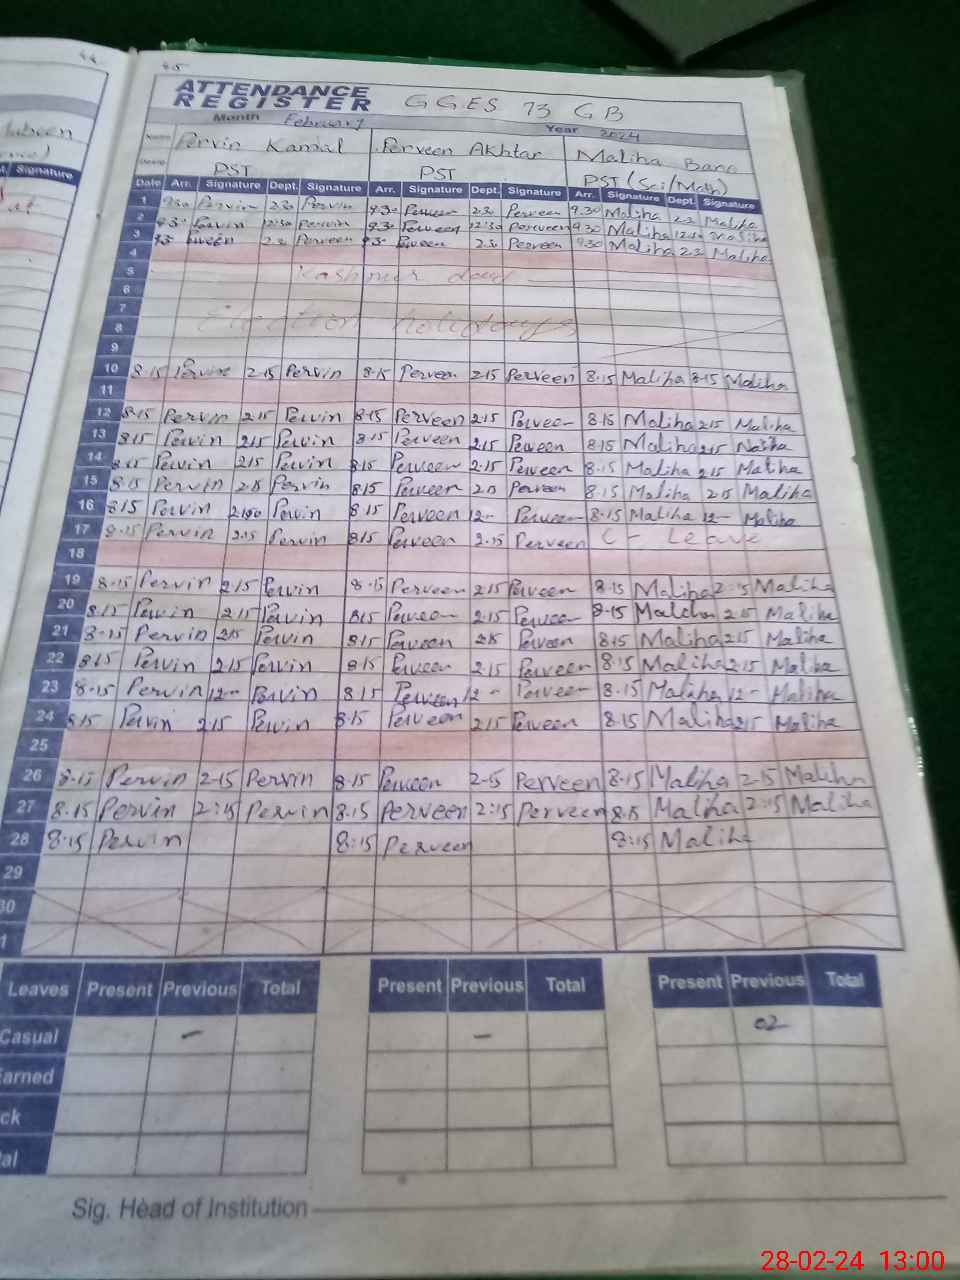 44
45
ATTENDANCE
REGISTER GGES 73 GB
Month February Year 2024
Name Pervin Kamal Perveen Akhtar Maliha Bano
PST PST PST (Sci/Math)
Signature
Date Arr. Signature Dept. Signature Arr. Signature Dept. Signature Arr. Signature Dept. Signature
1 9.30 Pervin 2.30 Pervin 9.30 Perveen 2.30 Perveen 9.30 Maliha 2.30 Maliha
2 9.30 Pervin 12:30 Pervin 9.30 Perveen 12:30 Perveen 9.30 Maliha 12.30 Maliha
3 Perveen Perveen 2.30 Perveen 9.30 Maliha 2.30 Maliha
4
5 Kashmir day
6
7
8 Election holidays
9
10 8.15 Pervin 2.15 Pervin 8.15 Perveen 2.15 Perveen 8.15 Maliha 8.15 Maliha
11
12 8.15 Pervin 2.15 Pervin 8.15 Perveen 2.15 Perveen 8.15 Maliha 2.15 Maliha
13 8.15 Pervin 2.15 Pervin 8.15 Perveen 2.15 Perveen 8.15 Maliha 2.15 Maliha
14 8.15 Pervin 2.15 Pervin 8.15 Perveen 2.15 Perveen 8.15 Maliha 2.15 Maliha
15 8.15 Pervin 2.15 Pervin 8.15 Perveen 2.15 Perveen 8.15 Maliha 2.15 Maliha
16 8.15 Pervin Pervin 8.15 Perveen 12- Perveen 8.15 Maliha 12- Maliha
17 8.15 Pervin 2.15 Pervin 8.15 Perveen 2.15 Perveen C- Leave
18
19 8.15 Pervin 2.15 Pervin 8.15 Perveen 2.15 Perveen 8.15 Maliha 2.15 Maliha
20 8.15 Pervin 2.15 Pervin 8.15 Perveen 2.15 Perveen 8.15 Maliha 2.15 Maliha
21 8.15 Pervin 2.15 Pervin 8.15 Perveen 2.15 Perveen 8.15 Maliha 2.15 Maliha
22 8.15 Pervin 2.15 Pervin 8.15 Perveen 2.15 Perveen 8.15 Maliha 2.15 Maliha
23 8.15 Pervin 12- Pervin 8.15 Perveen 12- Perveen 8.15 Maliha 12- Maliha
24 8.15 Pervin 2.15 Pervin 8.15 Perveen 2.15 Perveen 8.15 Maliha 2.15 Maliha
25
26 8.15 Pervin 2-15 Pervin 8.15 Perveen 2-5 Perveen 8.15 Maliha 2-15 Maliha
27 8.15 Pervin 2:15 Pervin 8.15 Perveen 2:15 Perveen 8.15 Maliha 2:15 Maliha
28 8:15 Pervin 8:15 Perveen 8:15 Maliha
29
30
1
Leaves Present Previous Total Present Previous Total Present Previous Total
Casual - - 02
Earned
ck
tal
Sig. Head of Institution
28-02-24 13:00